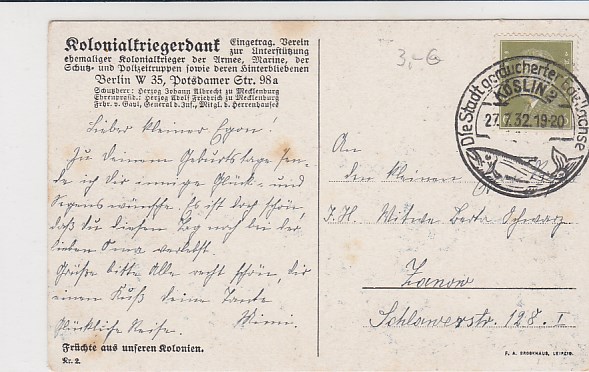 Kolonialkriegerdank Eingetrag. Verein
zur Unterstützung
ehemaliger Kolonialkrieger der Armee, Marine, der
Schutz- und Polizeitruppen sowie deren Hinterbliebenen
Berlin W 35, Potsdamer Str. 98a
Schutzherr: Herzog Johann Albrecht zu Mecklenburg
Ehrenpräsid.: Herzog Adolf Friedrich zu Mecklenburg
Frhr. v. Gayl, General d. Inf., Mitgl. d. Herrenhauses
Lieber kleiner Egon!
Zu deinem Geburtstage sen-
de ich dir innige Glück- und
Segenswünsche. Es ist doch schön,
daß du diesen Tag noch bei der
lieben Oma verlebst.
Grüße bitte Alle recht schön, dir
einen Kuß deine Tante
Glückliche Reise. Mimi.
Früchte aus unseren Kolonien.
Nr. 2.
3,-G
Die Stadt geräucherter Edellachse
KÖSLIN 2
27.7.32.19-20
An
den kleinen
J.H. Witwe Berta Schwarz
Zanow
Schlawerstr. 128. I
F. A. BROCKHAUS, LEIPZIG.